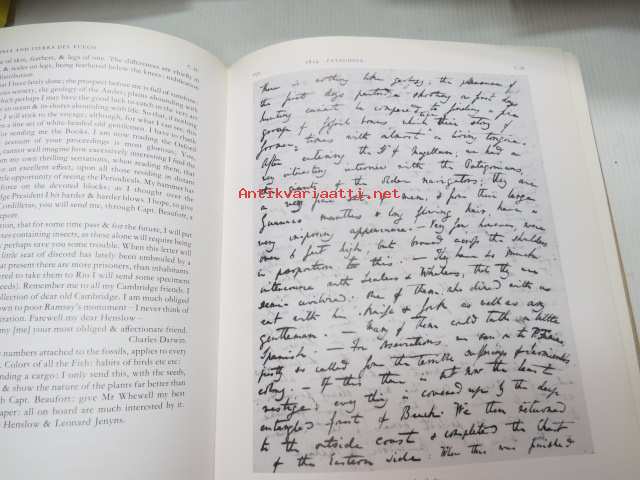 NIA AND TIERRA DEL FUEGO
of skin, feathers, & legs of one. The differences are chiefly in
& scales on legs, being feathered below the knees; nidification
distribution.
I have lately done; the prospect before me is full of sunshine.
scenery, the geology of the Andes; plains abounding with
which perhaps I may have the good luck to catch in the very act
coast & its shores abounding with life. So that, if nothing
I will stick to the voyage; although, for what I can see, this
a fine set of white-headed old gentlemen. I have to thank
for sending me the Books. I am now reading the Oxford
account of your proceedings is most glorious. You
cannot well imagine how exceedingly interesting I find the
my own thrilling sensations, when reading them, that
an excellent effect, upon all those residing in distant
opportunity of seeing the Periodicals. My hammer has
force on the devoted blocks; as I thought over the
President I hit harder & harder blows. I hope, to give
Cordilleras, you will send me, through Capt. Beaufort, a
tion, that for some time past & for the future, I will put
containing insects, as these alone will require being
perhaps save you some trouble. When this letter will
little seat of discord has lately been embroiled by a
at present there are more prisoners, than inhabitants
ered to take them to Rio I will send some specimens
eeds). Remember me to all my Cambridge friends. I
ollection of dear old Cambridge. I am much obliged
down to poor Ramsay's monument – I never think of
ration. Farewell my dear Henslow –
my [me] your most obliged & affectionate friend.
Charles Darwin.
numbers attached to the fossils, applies to every
Colors of all the Fish: habits of birds etc etc:
nding a cargo: I only send this, with the seeds,
& show the nature of the plants far better than
h Capt. Beaufort: give Mr Whewell my best
aper: all on board are much interested by it.
Henslow & Leonard Jenyns.
1834 PATAGONIA
there is nothing like geology; the pleasure of
the first days partridge shooting or first days
hunting cannot be compared to finding a fine
group of fossil bones, which tell their story of
former times with almost a living tongue.
After entering the St of Magellan, we had a
very interesting interview with the Patagonians,
the Giants of the older navigators; they are
a very fine set of men, & from their large
Guanaco mantles & long flowing hair, have a
very imposing appearance. – Very few however, were
over 6 feet high, but broad across the shoulders
in proportion to this. – They have so much
intercourse with Sealers & Whalers, that they are
semi civilized. One of them, who dined with us
eat with his knife & fork as well as any
gentleman. – Many of them could talk a little
Spanish. –
colony. – Of this there is not now the least
vestige; every thing is covered up by the deep
entangled forest of Beech. We then returned
to the outside coast & completed the Chart
of the Eastern side. When this was finished
Antikvariaatti.net